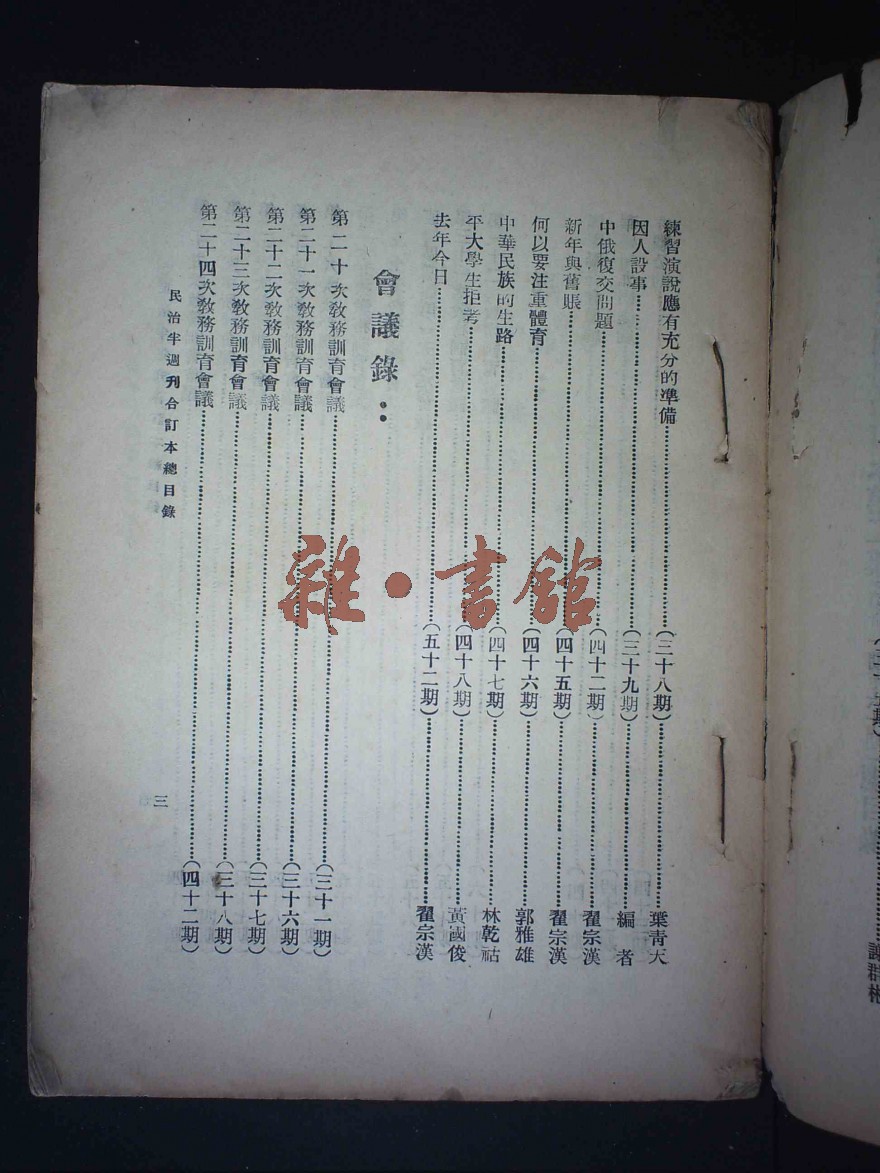 練習演說應有充分的準備……(三十八期)……葉青天
因人設事……(三十九期)……編者
中俄復交問題……(四十二期)……翟宗漢
新年與舊賬……(四十五期)……翟宗漢
何以要注重體育……(四十六期)……郭雅雄
中華民族的生路……(四十七期)……林乾祜
平大學生拒考……(四十八期)……黃國俊
去年今日……(五十二期)……翟宗漢
會議錄：
第二十次教務訓育會議……(三十一期)
第二十一次教務訓育會議……(三十六期)
第二十二次教務訓育會議……(三十七期)
第二十三次教務訓育會議……(三十八期)
第二十四次教務訓育會議……(四十二期)
民治半週刊合訂本總目錄
三
雜·書館